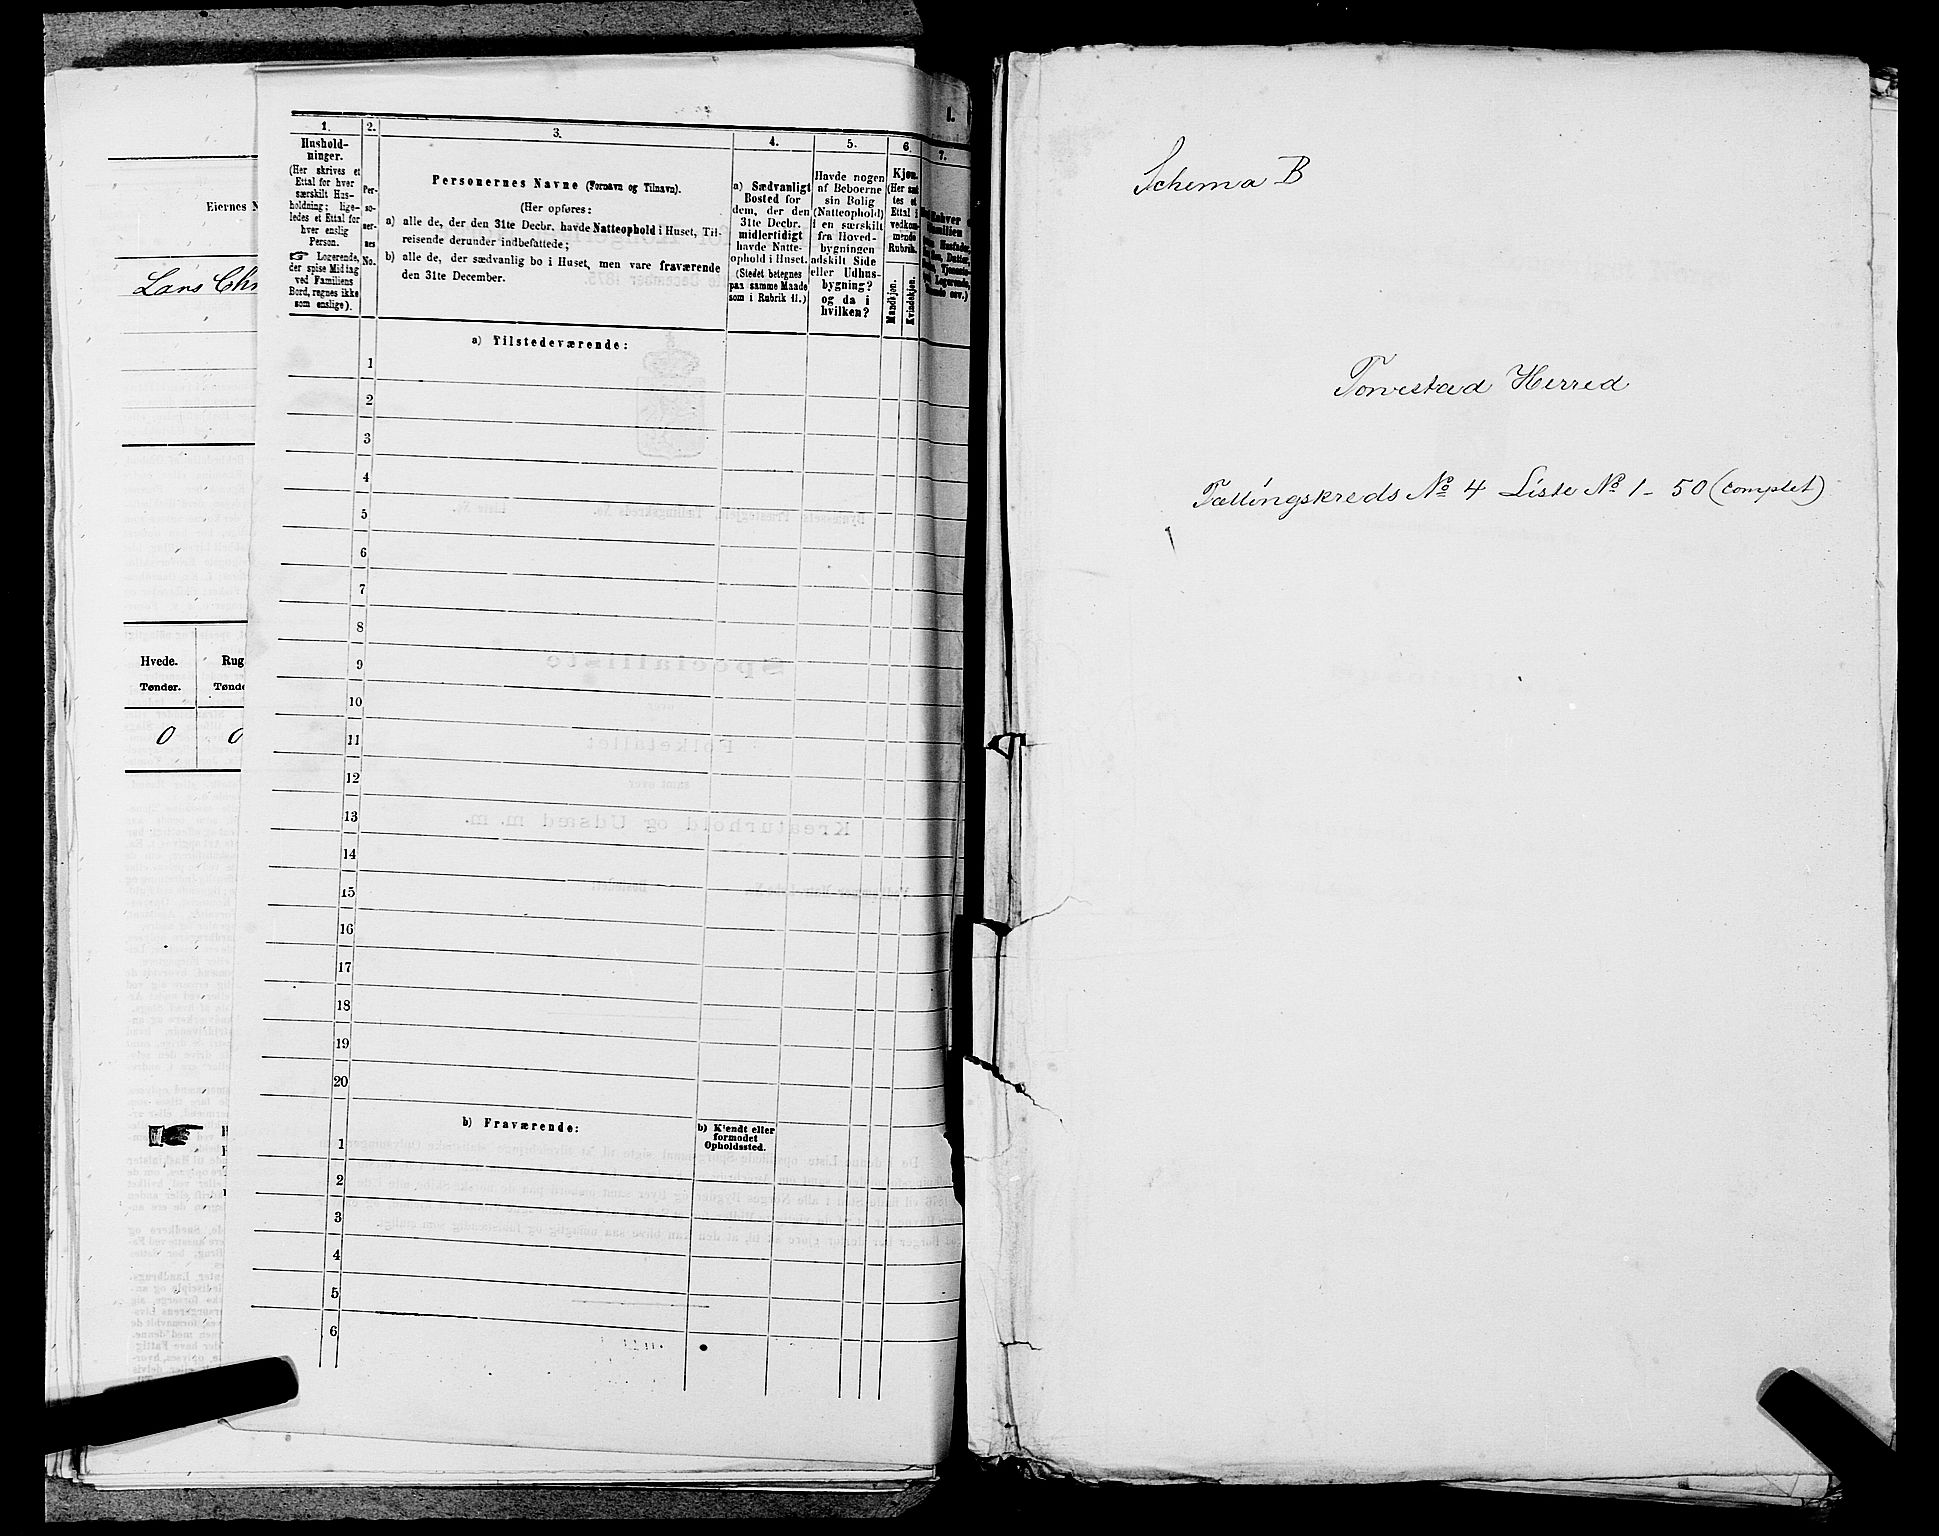 Eiernes N
Lars Chr
Hvede.
Rug
Tønder.
Tønde
0
0
1.
2.
3.
4.
5.
6.
7.
I.
Hushold-
ninger.
(Her skrives et
Ettal for hver
særskilt Hus-
holdning; lige-
ledes et Ettal for
hver enslig
Person.
☞ Logerende,
der spise Middag
ved Familiens
Bord, regnes ikke
som enslige).
Per-
so-
ner-
nes
No.
Personernes Navne (Fornavn og Tilnavn).
(Her opføres:
a) alle de, der den 31te Decbr. havde Natteophold i Huset, Til-
reisende derunder indbefattede;
b) alle de, der sædvanlig bo i Huset, men vare fraværende
den 31te December.
a) Sædvanligt
Bosted for
dem, der den
31te Decbr.
midlertidigt
havde Natte-
ophold i Huset.
(Stedet betegnes
paa samme Maade
som i Rubrik 11.)
Havde nogen
af Beboerne
sin Bolig
(Natteophold)
i en særskilt
fra Hoved-
bygningen
adskilt Side
eller Udhus-
bygning?
og da i
hvilken?
Kjøn.
(Her sæt
tes et
Ettal i
vedkom-
mende
Rubrik.
Mandkjøn.
Kvindekjøn.
a) Tilstedeværende:
1
2
3
4
5
6
7
8
9
10
11
12
13
14
15
16
17
18
19
20
b) Fraværende:
b) Kjendt eller
formodet
Opholdssted.
1
2
3
4
5
6
Schema B
Torvestad Herred
Tællingskreds No 4 Liste No 1 - 50 (complet)